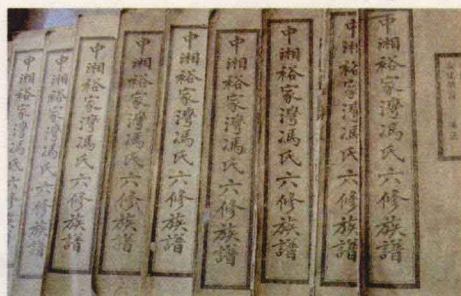 中湘裕家灣馮氏六修族譜
中湘裕家灣馮氏六修族譜
中湘裕家灣馮氏六修族譜
中湘裕家灣馮氏六修族譜
中湘裕家灣馮氏六修族譜
中湘裕家灣馮氏六修族譜
中湘裕家灣馮氏六修族譜
中湘裕家灣馮氏六修族譜
中湘裕家灣馮氏六修族譜